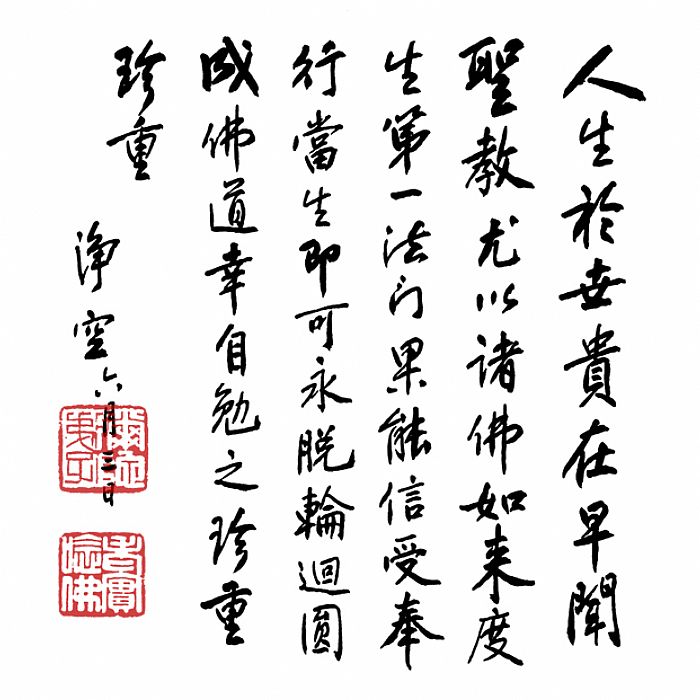 人生於世貴在早聞
聖教尤以诸佛如来度
生第一法门果能信受奉
行當生即可永脱輪迴圆
成佛道幸自勉之珍重
珍重
淨空六月三日
老實
唸佛